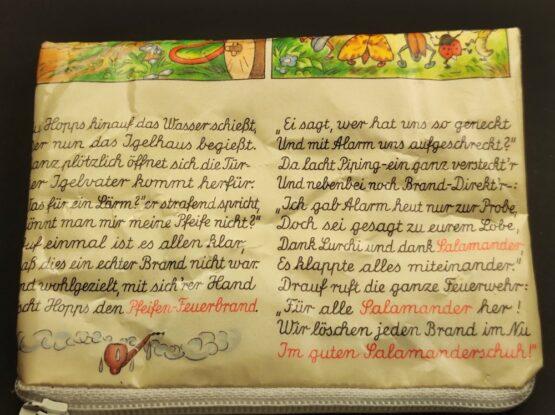 Hopps hinauf das Wasser schießt,
er nun das Igelhaus begießt.
anz plötzlich öffnet sich die Tür-
er Igelvater kommt herfür.
as für ein Lärm?" er strafend spricht,
önnt man mir meine Pfeife nicht?"
uf einmal ist es allen klar,
aß dies ein echter Brand nicht war.
nd wohlgezielt, mit sich'rer Hand
scht Hopps den Pfeifen-Feuerbrand.
„Ei sagt, wer hat uns so geneckt
Und mit Alarm uns aufgeschreckt?"
Da lacht Piping-ein ganz versteckt'r
Und nebenbei noch Brand-Direkt'r-:
„Ich gab Alarm heut nur zur Probe,
Doch sei gesagt zu eurem Lobe,
Dank Lurchi und dank Salamander
Es klappte alles miteinander."
Drauf ruft die ganze Feuerwehr:
„Für alle Salamander her!
Wir löschen jeden Brand im Nu
Im guten Salamanderschuh!"